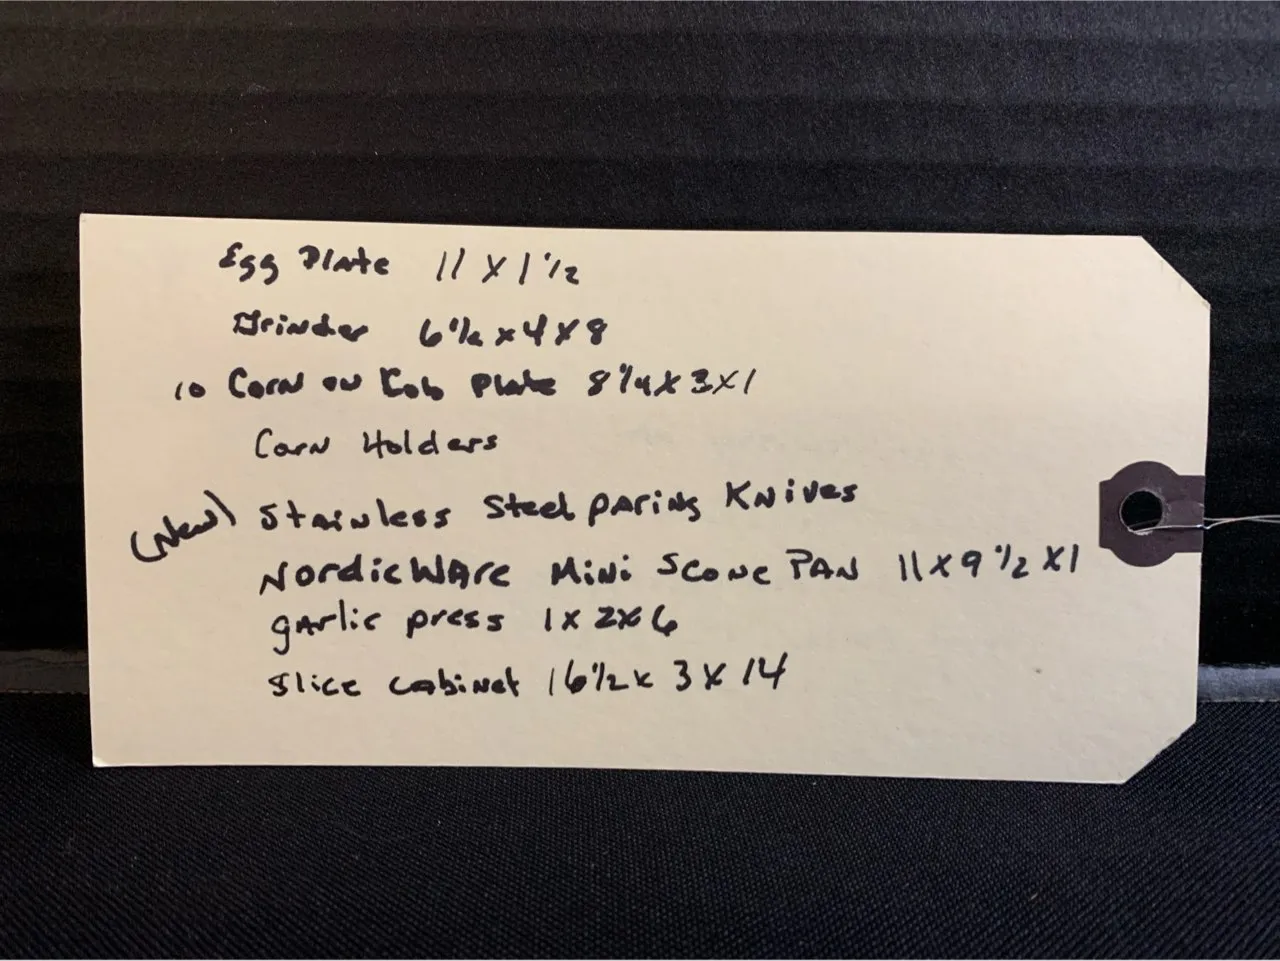 Egg Plate 11 x 1 1/2
Grinder 6 1/2 x 4 x 8
10 Corn on Cob Plate 8 1/4 x 3 x 1
Corn Holders
(New) Stainless Steel paring Knives
NordicWare Mini Scone Pan 11 x 9 1/2 x 1
garlic press 1 x 2 x 6
Slice cabinet 16 1/2 x 3 x 14